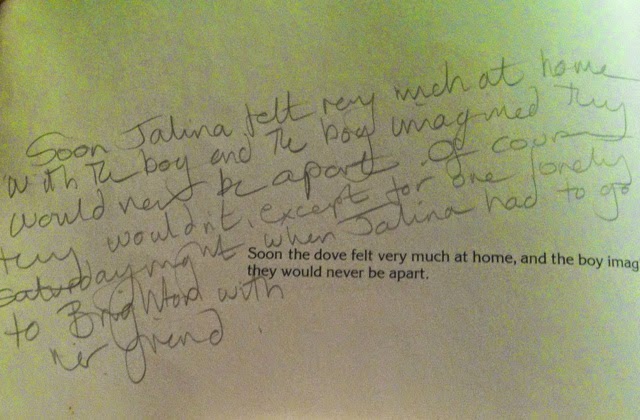 Soon Jalina felt very much at home
with the boy and the boy imagined they
would never be apart. Of course
they wouldn't, except for one lonely
saturday night when Jalina had to go
to Brighton with
her friend.
Soon the dove felt very much at home, and the boy imag
they would never be apart.